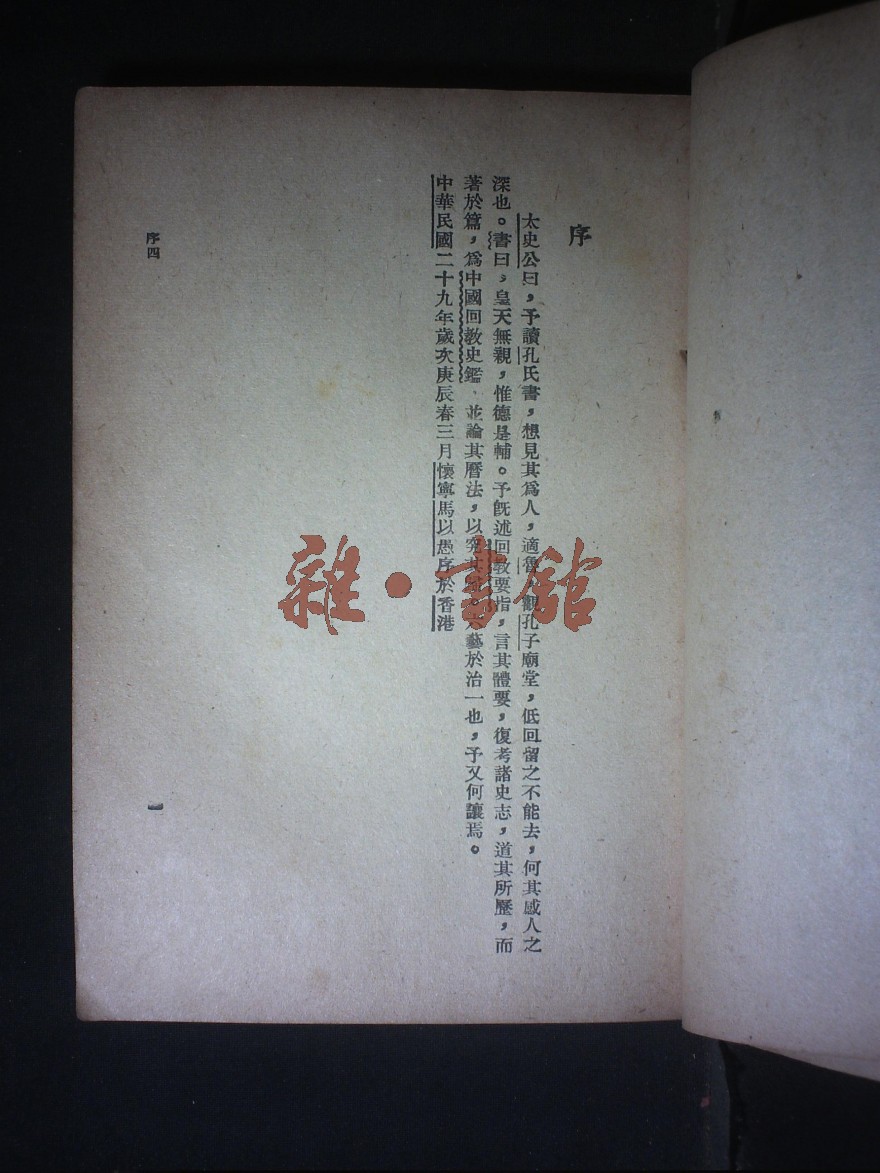 序
太史公曰，予讀孔氏書，想見其爲人，適魯，觀孔子廟堂，低回留之不能去，何其感人之
深也。書曰，皇天無親，惟德是輔。予既述回教要指，言其體要，復考諸史志，道其所歷，而
著於篇，爲中國回教史鑑，並論其曆法，以究其　。六藝於治一也，予又何讓焉。
中華民國二十九年歲次庚辰春三月懷寧馬以愚序於香港
序四
一
雜·書館